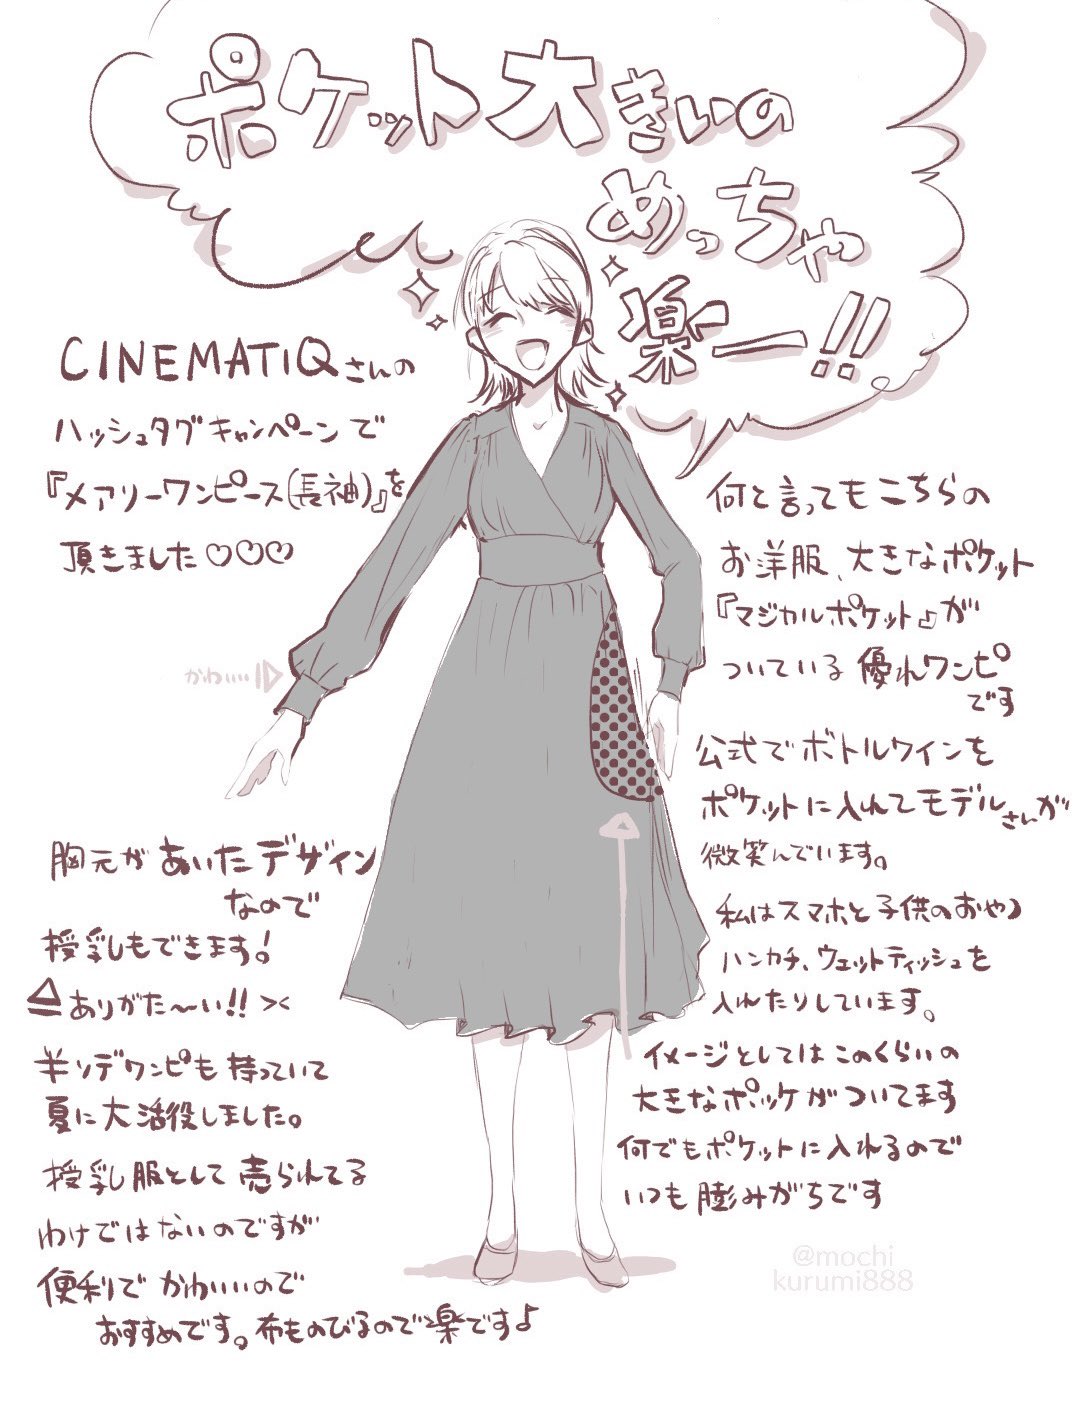 ポケット大きいの
めっちゃ
楽ー!!
CINEMATIQさんの
ハッシュタグキャンペーンで
『メアリーワンピース(長袖)』を
頂きました♡♡♡
かわいい
何と言ってもこちらの
お洋服、大きなポケット
『マジカルポケット』が
ついている優れワンピ
です
公式でボトルワインを
ポケットに入れてモデルさんが
微笑んでいます。
私はスマホと子供のおやつ
ハンカチ、ウェットティッシュを
入れたりしています。
イメージとしてはこのくらいの
大きなポッケがついてます
何でもポケットに入れるので
いつも膨みがちです
胸元があいたデザイン
なので
授乳もできます!
ありがた〜い!! ><
半ソデワンピも持っていて
夏に大活役しました。
授乳服として売られてる
わけではないのですが
便利でかわいいので
おすすめです。布ものびるので楽です♪
@mochi
kurumi888